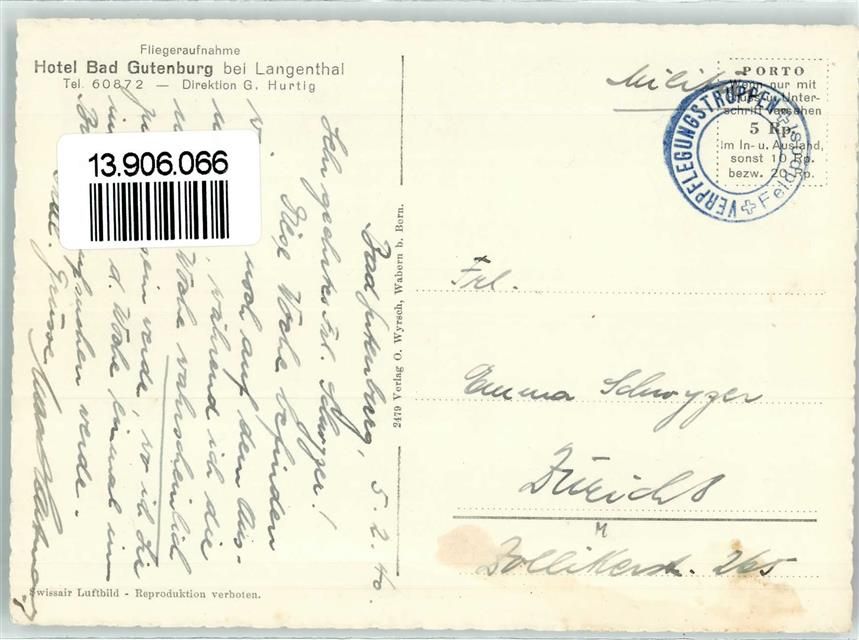 Fliegeraufnahme
Hotel Bad Gutenburg bei Langenthal
Tel. 60872 — Direktion G. Hurtig
13.906.066
Bad Gutenburg, 5.2.40.
Sehr geehrtes Frl. Schwyzer!
Diese Woche befinden
noch auf dem Aus-
während ich die
Woche wahrscheinlich
sein werde, wo ich Sie
d. Woche einmal im
aufsuchen werde.
Grüsse
2479 Verlag O. Wyrsch, Wabern b. Bern.
Swissair Luftbild - Reproduktion verboten.
PORTO
Wenn nur mit
Gruss u. Unter-
schrift versehen
5 Rp.
im In- u. Ausland,
sonst 10 Rp.
bezw. 20 Rp.
VERPFLEGUNGSTRUPPEN
Feldpost
Frl.
Emma Schwyzer
Zürich 8
Zollikerstr. 265